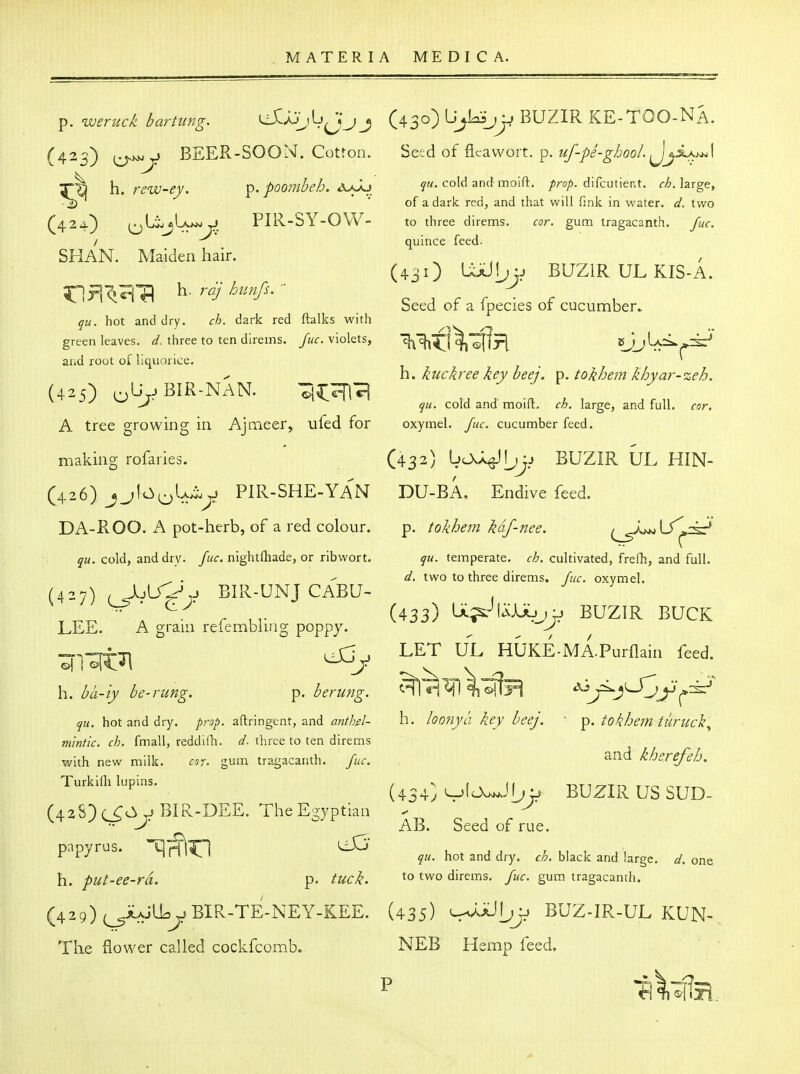 MATERIA MEDICA.
p. weruck bartung.
(423) BEER-SOON. Cotton.
h. rew-ey. p. poombeh. پنبه
(424) PIR-SY-OW-
SHAN. Maiden hair.
h. raj hunſs.
qu. hot and dry. ch. dark red ſtalks with
green leaves. d. three to ten direms. ſuc. violets,
and root of liquorice.
(425) BIR-NAN.
A tree growing in Ajmeer, uſed for
making roſaries.
(426) PIR-SHE-YAN
DA-ROO. A pot-herb, of a red colour.
qu. cold, and dry. ſuc. nightſhade, or ribwort.
(427) BIR-UNJ CABU-
LEE. A grain reſembling poppy.
h. bá-iy be-rung. p. berung.
qu. hot and dry. prop. aſtringent, and anthel-
mintic. ch. ſmall, reddiſh. d. three to ten direms
with new milk. cor. gum tragacanth. ſuc.
Turkiſh lupins.
(428) BIR-DEE. The Egyptian
papyrus.
h. put-ee-rá. p. tuck.
(429) BIR-TE-NEY-KEE.
The flower called cockſcomb.
(430) بزرقطونا BUZIR KE-TOO-NA.
Seed of fleawort. p. uſ-pé-ghool.
qu. cold and moiſt. prop. diſcutient. ch. large,
of a dark red, and that will ſink in water. d. two
to three direms. cor. gum tragacanth. ſuc.
quince ſeed.
(431) BUZIR UL KIS-Á.
Seed of a ſpecies of cucumber.
h. kuckree key beej. p. tokhem khyar-zeh.
qu. cold and moiſt. ch. large, and full. cor.
oxymel. ſuc. cucumber ſeed.
(432) بزرالهندبا BUZIR UL HIN-
DU-BA, Endive ſeed.
p. tokhem káſ-nee.
qu. temperate. ch. cultivated, freſh, and full.
d. two to three direms. ſuc. oxymel.
(433) BUZIR BUCK
LET UL HUKE-MA. Purſlain ſeed.
h. loonyá key beej. p. tokhem túruck,
and khereſeh.
(434) بزرالسداب BUZIR US SUD-
AB. Seed of rue.
qu. hot and dry. ch. black and large. d. one
to two direms. ſuc. gum tragacanth.
(435) بزرالقنب BUZ-IR-UL KUN-
NEB Hemp ſeed.
P